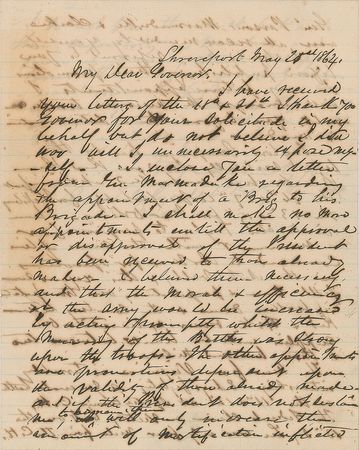 Shreveport May 20th 1864.
My Dear Governor.
I have received
your letters of the 18th & 20th I thank you
Governor for your solicitude in my
behalf but do not believe I ever
nor will I unnecessarily expose my
self. I inclose you a letter
from Gen Marmaduke regarding
the appointment of a Brig to his
Brigade. I shall make no more
appointments untill the approval
or disapproval of the President
has been received to those already
made. I believed them necessary
and that the Morale & efficiency
of the army would be increased
by acting promptly whilst the
of the Battles was strong
upon the troops. The other appointments
and promotions dependent upon
the validity of those already made
and if the President does not
me, it will only increase the
amount of mortification inflicted